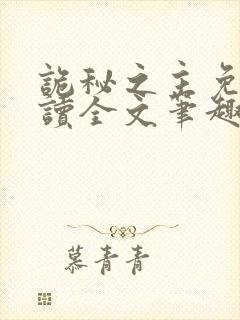 詭秘之主免
讀全文筆趣
慕青青